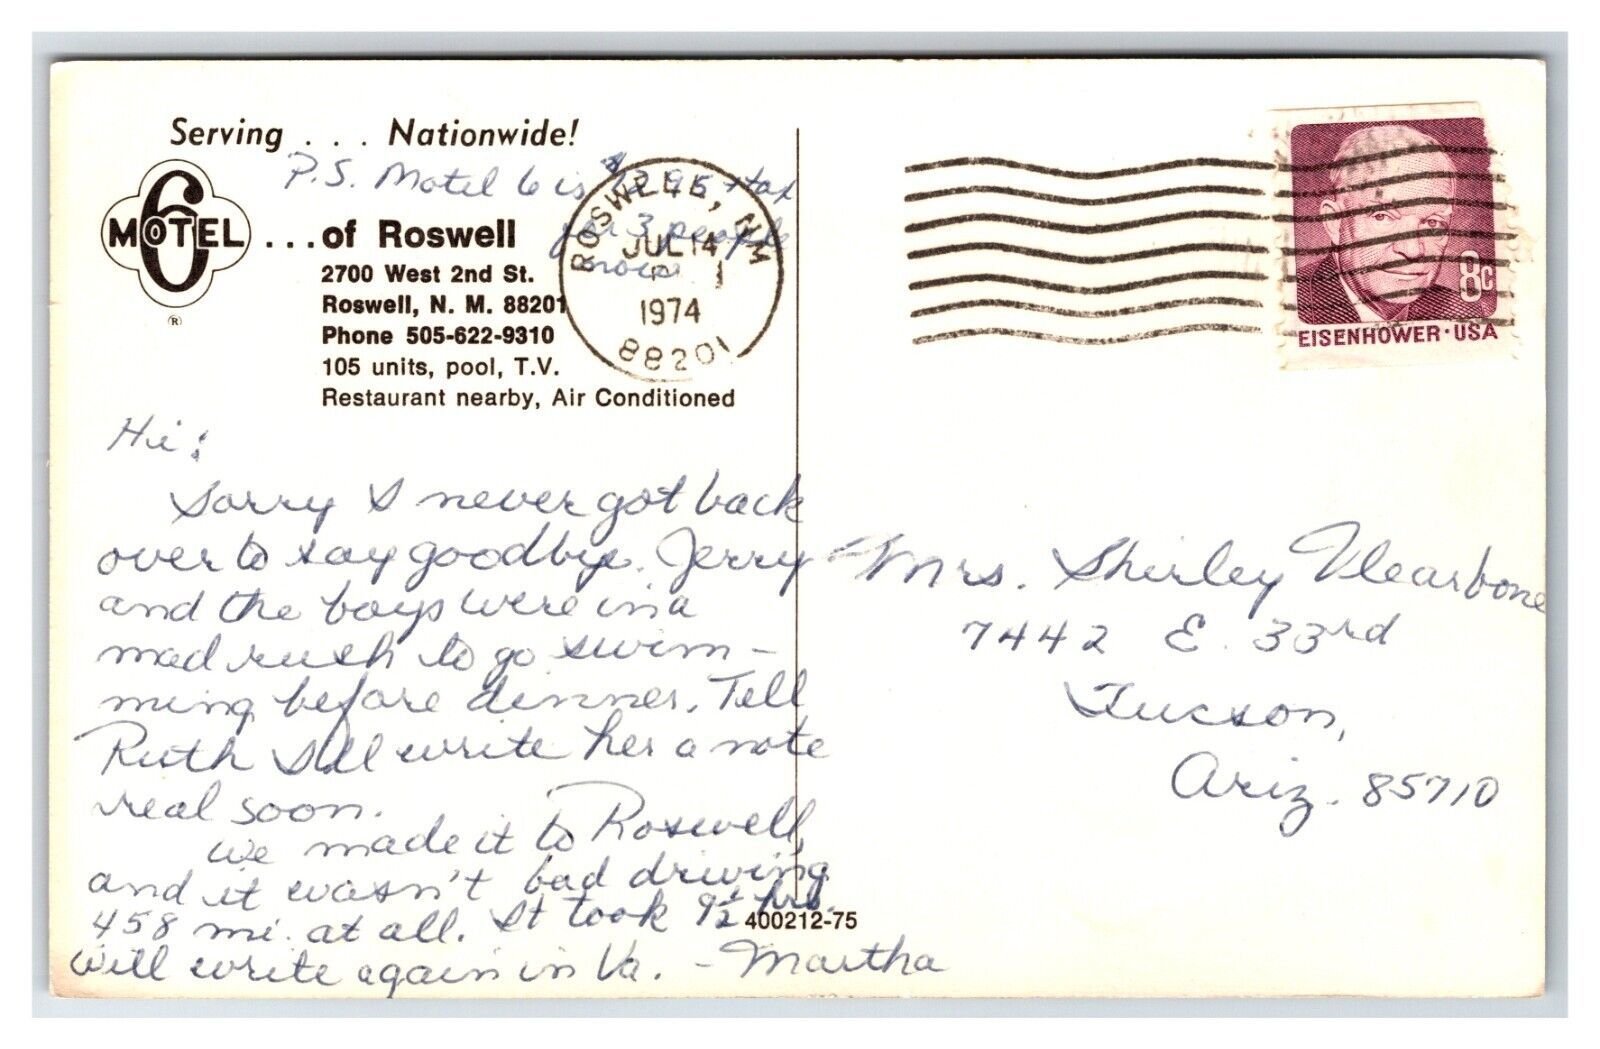 Serving . . . Nationwide!
P.S. Motel 6 is 95 + tax
for 3 people
now
6
MOTEL
®
...of Roswell
2700 West 2nd St.
Roswell, N. M. 88201
Phone 505-622-9310
105 units, pool, T.V.
Restaurant nearby, Air Conditioned
ROSWELL, NM
JUL 14
1974
88201
8c
EISENHOWER·USA
Hi!
Sorry I never got back
over to say goodbye. Jerry
and the boys were in a
mad rush to go swim-
ming before dinner. Tell
Ruth I'll write her a note
real soon.
We made it to Roswell,
and it wasn't bad driving
458 mi. at all. It took 9½ hrs.
Will write again in Va. - Martha
400212-75
Mrs. Shirley
7442 E. 33rd
Tucson,
Ariz. 85710